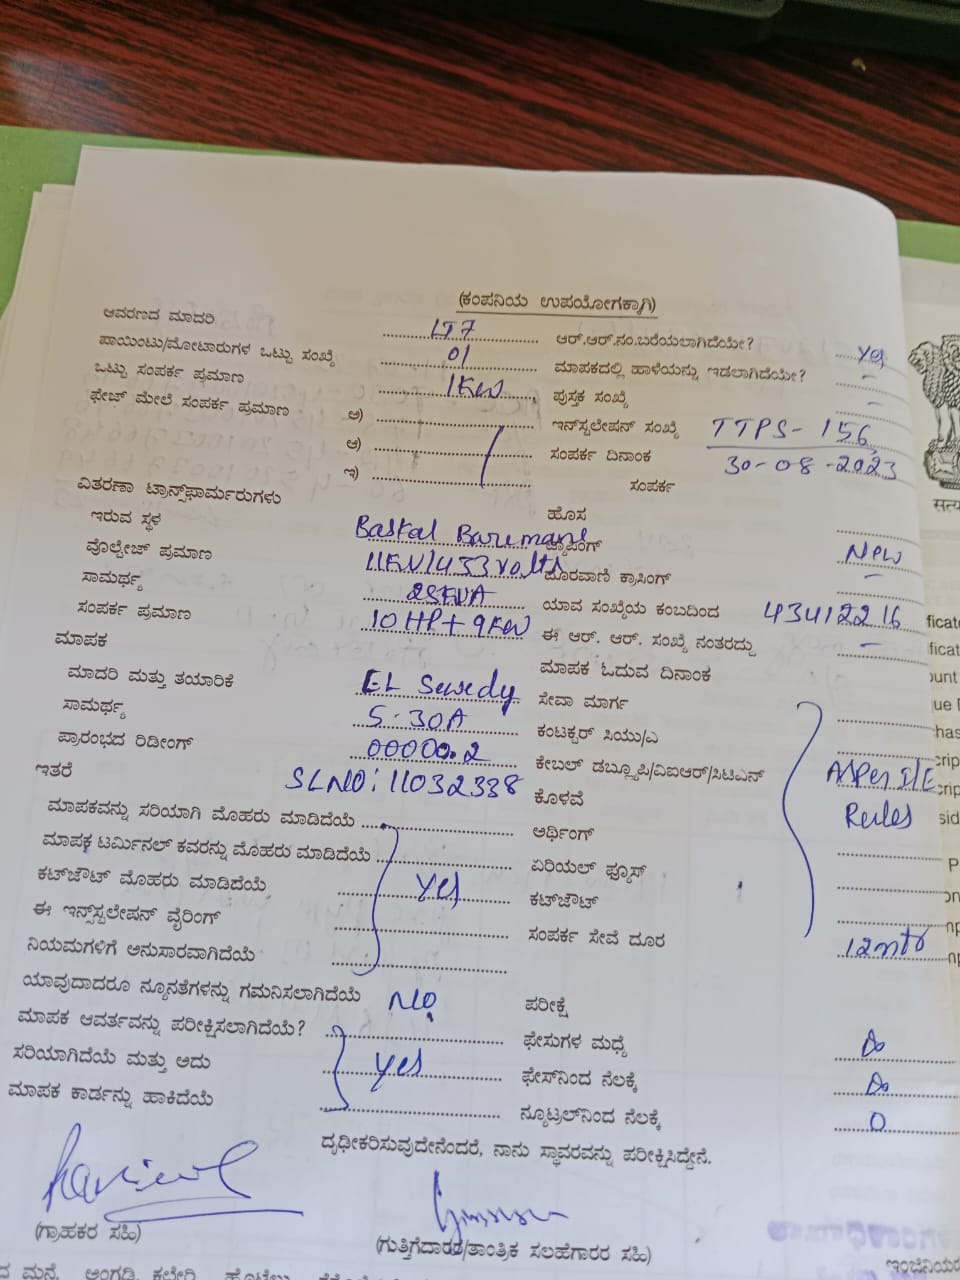 (ಕಂಪನಿಯ ಉಪಯೋಗಕ್ಕಾಗಿ)
ಆವರಣದ ಮಾದರಿ LT7 ಆರ್.ಆರ್.ನಂ.ಬರೆಯಲಾಗಿದೆಯೇ? Yes
ಪಾಯಿಂಟು/ಮೋಟಾರುಗಳ ಒಟ್ಟು ಸಂಖ್ಯೆ 01 ಮಾಪಕದಲ್ಲಿ ಹಾಳೆಯನ್ನು ಇಡಲಾಗಿದೆಯೇ? –
ಒಟ್ಟು ಸಂಪರ್ಕ ಪ್ರಮಾಣ 1KW ಪುಸ್ತಕ ಸಂಖ್ಯೆ –
ಫೇಜ್ ಮೇಲೆ ಸಂಪರ್ಕ ಪ್ರಮಾಣ ಅ) ಇನ್ಸ್ಟಲೇಷನ್ ಸಂಖ್ಯೆ TTPS-156
ಆ) ಸಂಪರ್ಕ ದಿನಾಂಕ 30-08-2023
ಇ) ಸಂಪರ್ಕ
ವಿತರಣಾ ಟ್ರಾನ್ಸ್‌ಫಾರ್ಮರುಗಳು ಹೊಸ
ಇರುವ ಸ್ಥಳ Baskal Baremane ಟ್ಯಾಪಿಂಗ್ New
ವೊಲ್ಟೇಜ್ ಪ್ರಮಾಣ 11KV/433volts ದೂರವಾಣಿ ಕ್ರಾಸಿಂಗ್ –
ಸಾಮರ್ಥ್ಯ 25KVA ಯಾವ ಸಂಖ್ಯೆಯ ಕಂಬದಿಂದ 43412216
ಸಂಪರ್ಕ ಪ್ರಮಾಣ 10HP+9KW ಈ ಆರ್. ಆರ್. ಸಂಖ್ಯೆ ನಂತರದ್ದು –
ಮಾಪಕ ಮಾಪಕ ಓದುವ ದಿನಾಂಕ
ಮಾದರಿ ಮತ್ತು ತಯಾರಿಕೆ EL Sewedy ಸೇವಾ ಮಾರ್ಗ
ಸಾಮರ್ಥ್ಯ 5-30A ಕಂಟಕ್ಟರ್ ಸಿಯು/ಎ
ಪ್ರಾರಂಭದ ರಿಡೀಂಗ್ 00000.2 ಕೇಬಲ್ ಡಬ್ಲ್ಯೂಪಿ/ವಿಐಆರ್/ಸಿಟಿಎನ್
ಇತರೆ SLNO: 11032338 ಕೊಳವೆ As per I/E Rules
ಮಾಪಕವನ್ನು ಸರಿಯಾಗಿ ಮೊಹರು ಮಾಡಿದೆಯೆ ಅರ್ಥಿಂಗ್
ಮಾಪಕ ಟರ್ಮಿನಲ್ ಕವರನ್ನು ಮೊಹರು ಮಾಡಿದೆಯೆ ಏರಿಯಲ್ ಫ್ಯೂಸ್
ಕಟ್‌ಔಟ್ ಮೊಹರು ಮಾಡಿದೆಯೆ Yes ಕಟ್‌ಔಟ್
ಈ ಇನ್ಸ್ಟಲೇಷನ್ ವೈರಿಂಗ್ ಸಂಪರ್ಕ ಸೇವೆ ದೂರ 12mtr
ನಿಯಮಗಳಿಗೆ ಅನುಸಾರವಾಗಿದೆಯೆ
ಯಾವುದಾದರೂ ನ್ಯೂನತೆಗಳನ್ನು ಗಮನಿಸಲಾಗಿದೆಯೆ NO ಪರೀಕ್ಷೆ
ಮಾಪಕ ಆವರ್ತವನ್ನು ಪರೀಕ್ಷಿಸಲಾಗಿದೆಯೆ? ಫೇಸುಗಳ ಮಧ್ಯೆ ∞
ಸರಿಯಾಗಿದೆಯೆ ಮತ್ತು ಅದು Yes ಫೇಸ್‌ನಿಂದ ನೆಲಕ್ಕೆ ∞
ಮಾಪಕ ಕಾರ್ಡನ್ನು ಹಾಕಿದೆಯೆ ನ್ಯೂಟ್ರಲ್‌ನಿಂದ ನೆಲಕ್ಕೆ 0
ದೃಢೀಕರಿಸುವುದೇನೆಂದರೆ, ನಾನು ಸ್ಥಾವರವನ್ನು ಪರೀಕ್ಷಿಸಿದ್ದೇನೆ.
(ಗ್ರಾಹಕರ ಸಹಿ) (ಗುತ್ತಿಗೆದಾರರ/ತಾಂತ್ರಿಕ ಸಲಹೆಗಾರರ ಸಹಿ)